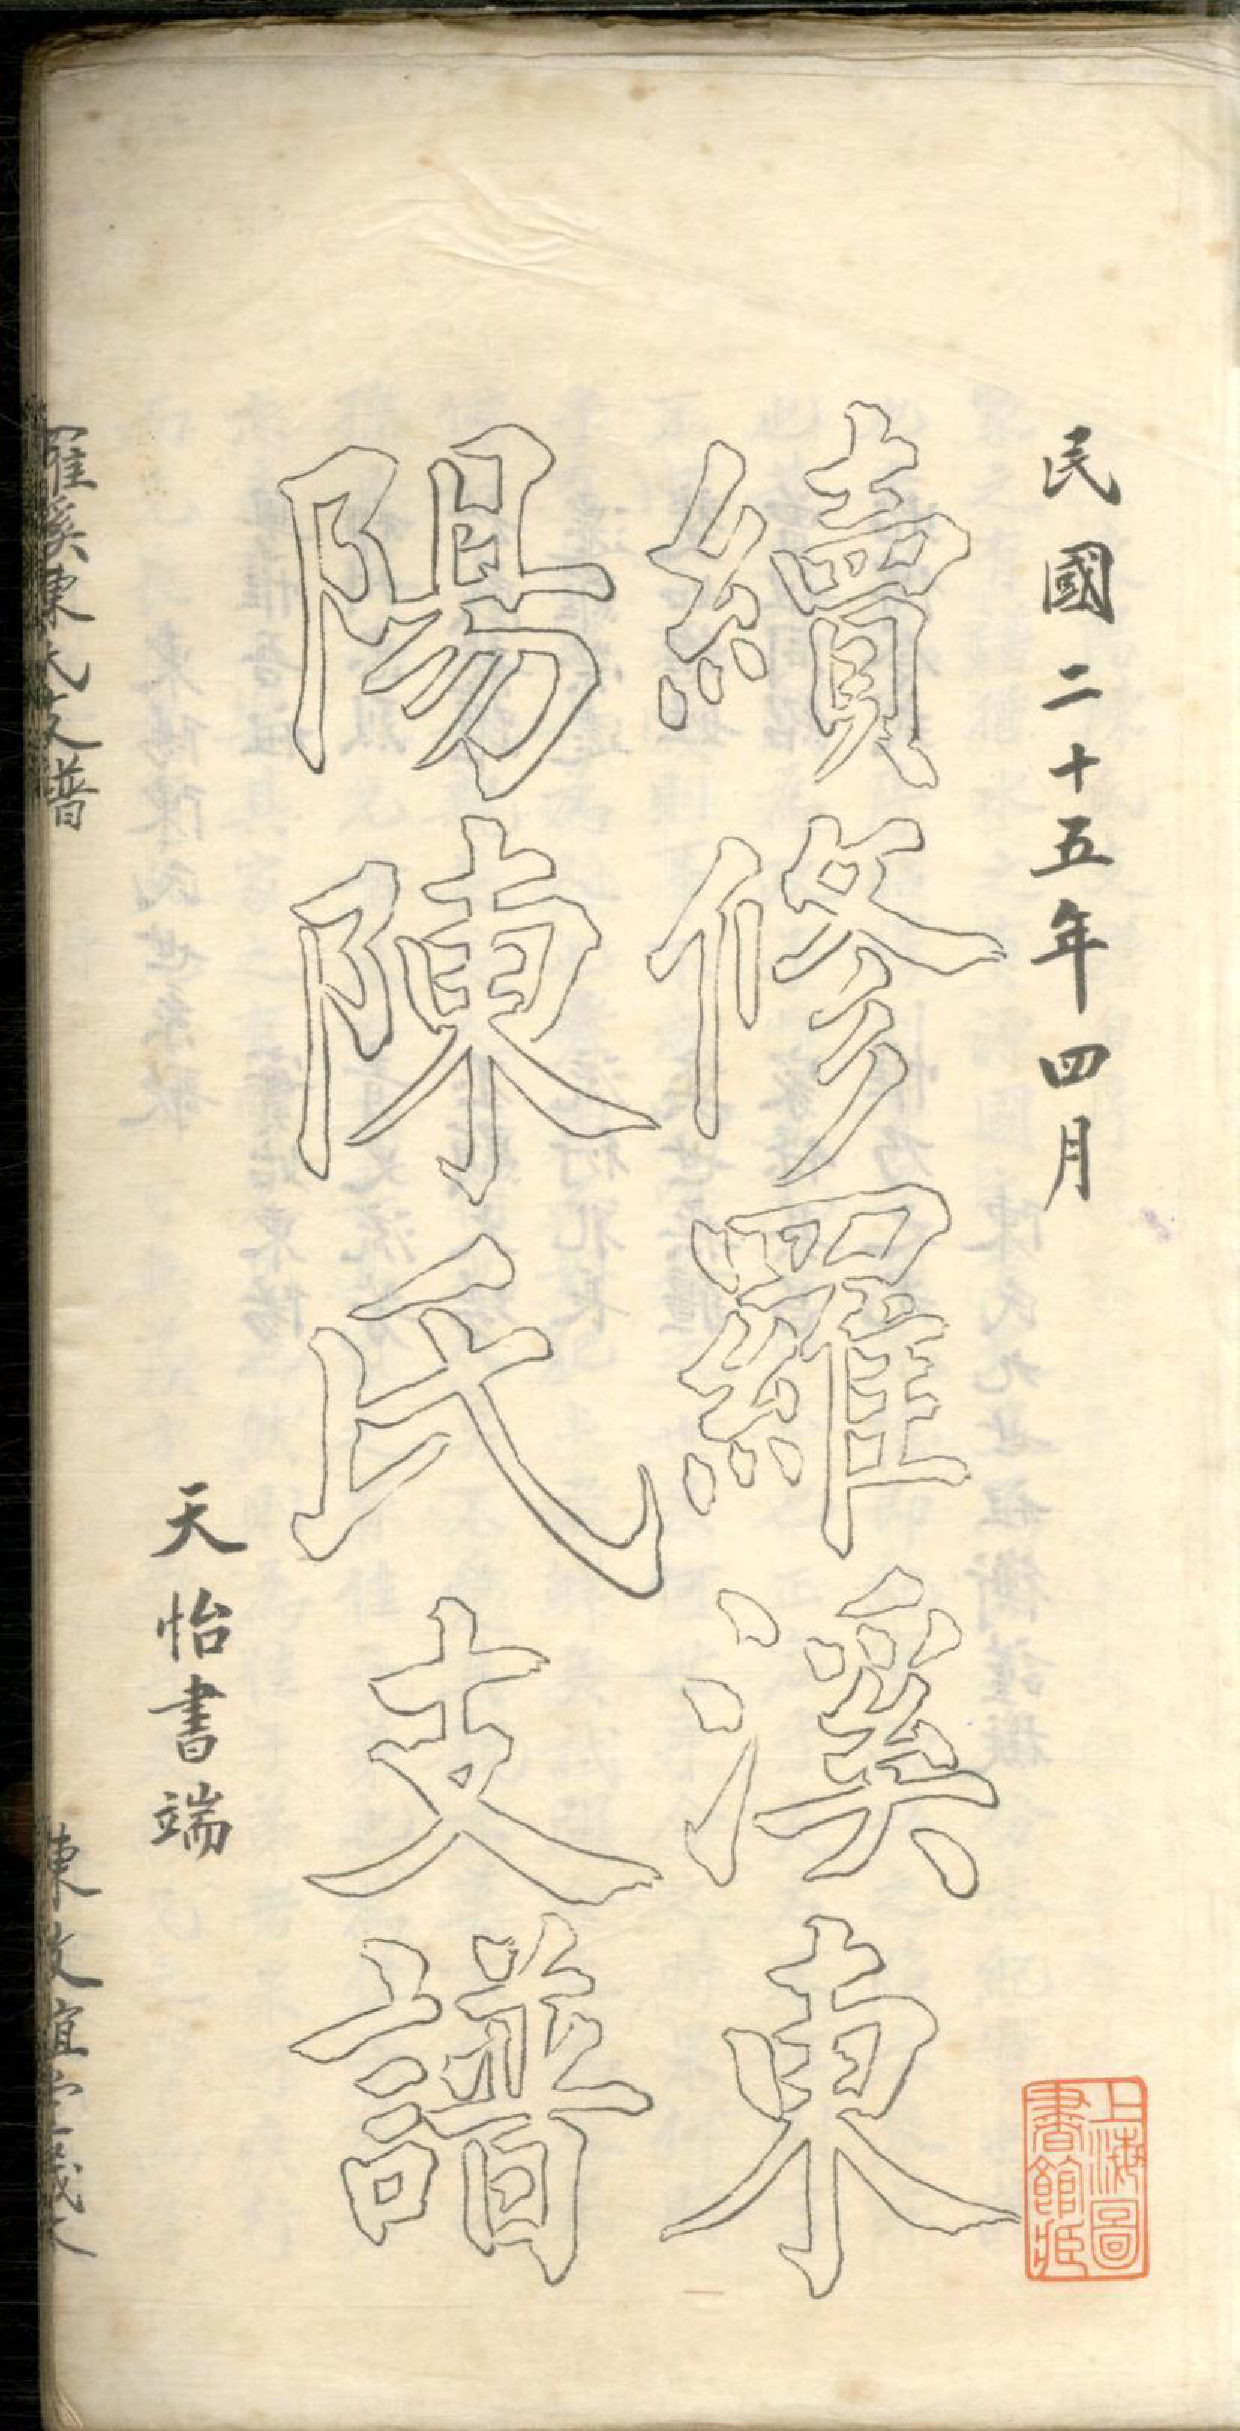 民國二十五年四月
續修羅溪東
陽陳氏支譜
天怡書端
羅溪陳氏支譜
陳敦誼堂義
上海圖
書館藏